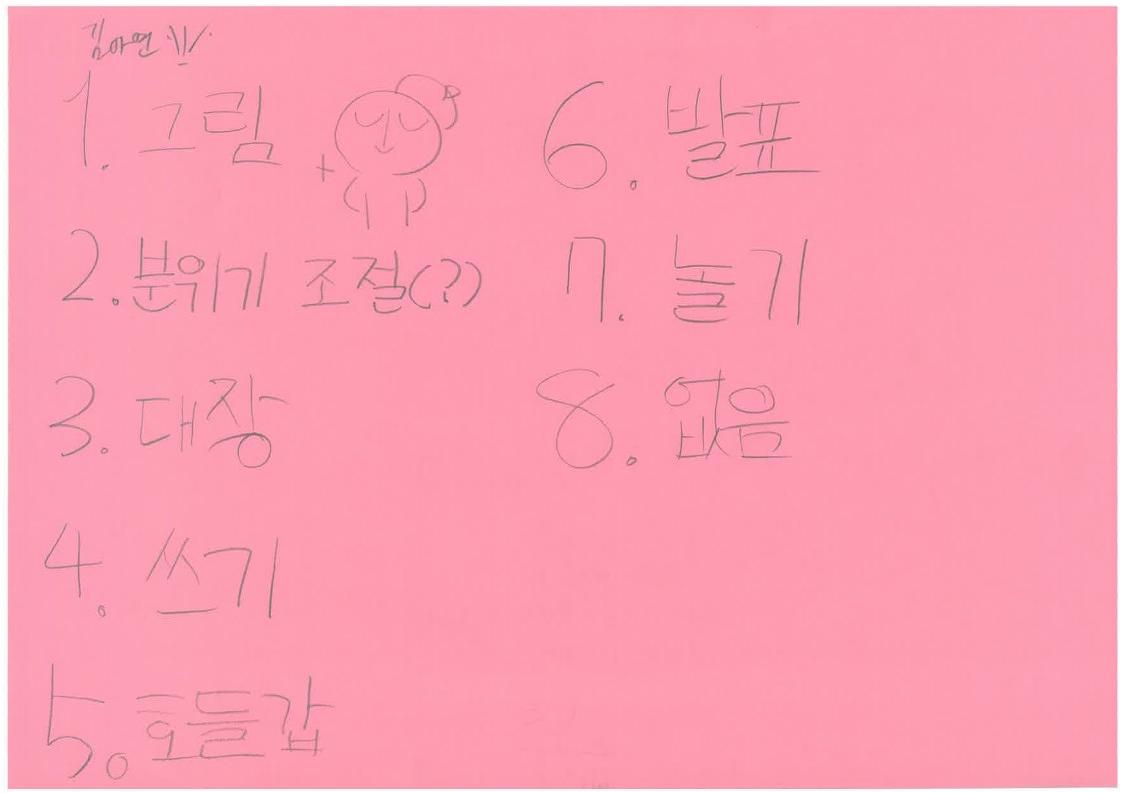 김아연
1. 그림
2. 분위기 조절(?)
3. 대장
4. 쓰기
5. 호들갑
6. 발표
7. 놀기
8. 없음